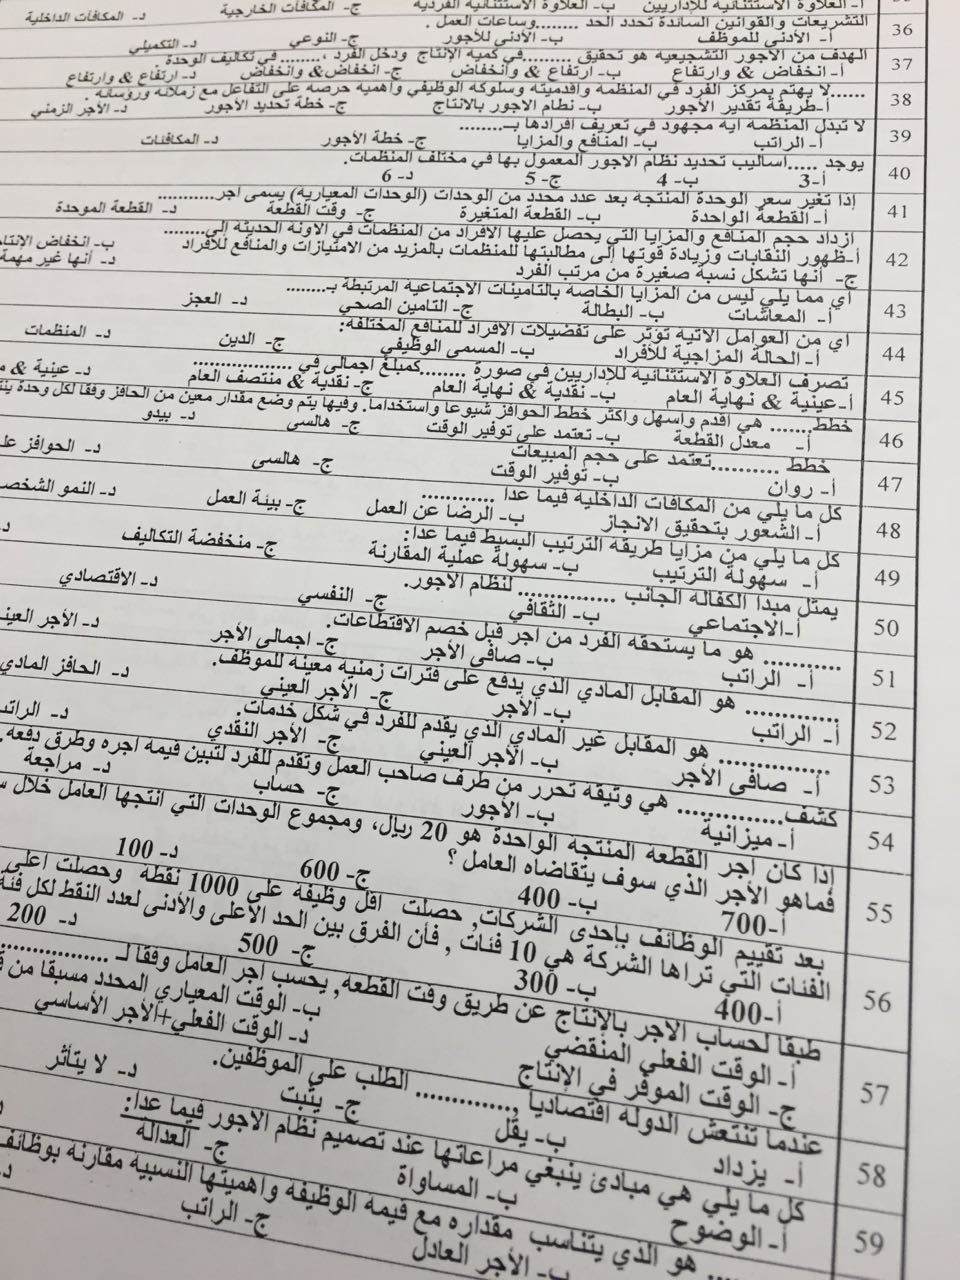 أ- العلاوة الاستثنائية للإداريين ب- العلاوة الاستثنائية الفردية ج- المكافآت الخارجية د- المكافآت الداخلية
36 التشريعات والقوانين السائدة تحدد الحد ........وساعات العمل .
أ- الأدنى للموظف ب- الأدنى للأجور ج- النوعي د- التكميلي
37 الهدف من الأجور التشجيعية هو تحقيق .........في كمية الإنتاج ودخل الفرد ,........ في تكاليف الوحدة .
أ- انخفاض & وارتفاع ب- ارتفاع & وانخفاض ج- انخفاض& وانخفاض د- ارتفاع & وارتفاع
38 ......لا يهتم بمركز الفرد في المنظمة واقدميته وسلوكه الوظيفي واهمية حرصه على التفاعل مع زملائه ورؤسائه .
أ-طريقة تقدير الأجور ب- نظام الاجور بالانتاج ج- خطة تحديد الأجور د- الأجر الزمني
39 لا تبذل المنظمة اية مجهود في تعريف افرادها بـ........
أ- الراتب ب- المنافع والمزايا ج- خطة الأجور د- المكافئات
40 يوجد .....اساليب تحديد نظام الاجور المعمول بها في مختلف المنظمات.
أ-3 ب- 4 ج- 5 د- 6
41 إذا تغير سعر الوحدة المنتجة بعد عدد محدد من الوحدات (الوحدات المعيارية) يسمى اجر...........
أ- القطعة الواحدة ب- القطعة المتغيرة ج- وقت القطعة د- القطعة الموحدة
42 ازداد حجم المنافع والمزايا التي يحصل عليها الافراد من المنظمات في الاونة الحديثة إلى........
أ-ظهور النقابات وزيادة قوتها إلى مطالبتها للمنظمات بالمزيد من الامتيازات والمنافع للأفراد ب- انخفاض
ج- أنها تشكل نسبة صغيرة من مرتب الفرد د- أنها غير مهمة
43 أي مما يلي ليس من المزايا الخاصة بالتامينات الاجتماعية المرتبطة بـ........
أ- المعاشات ب- البطالة ج- التامين الصحي د- العجز
44 اي من العوامل الاتية تؤثر على تفضيلات الافراد للمنافع المختلفة:
أ- الحالة المزاجية للأفراد ب- المسمى الوظيفي ج- الدين د- المنظمات
45 تصرف العلاوة الاستثنائية للإداريين في صورة ........كمبلغ اجمالى في ...............
أ-عينية & نهاية العام ب- نقدية & نهاية العام ج- نقدية & منتصف العام د- عينية &
46 خطط........ هي اقدم واسهل واكثر خطط الحوافز شيوعا واستخداما. وفيها يتم وضع مقدار معين من الحافز وفقا لكل وحدة
أ- معدل القطعة ب- تعتمد على توفير الوقت ج- هالسى د- بيدو
47 خطط ..........تعتمد على حجم المبيعات
أ- روان ب- توفير الوقت ج- هالسى د- الحوافز
48 كل ما يلي من المكافات الداخلية فيما عدا ............
أ- الشعور بتحقيق الانجاز ب- الرضا عن العمل ج- بيئة العمل د- النمو
49 كل ما يلي من مزايا طريقة الترتيب البسيط فيما عدا:
أ- سهولة الترتيب ب- سهولة عملية المقارنة ج- منخفضة التكاليف
50 يمثل مبدا الكفالة الجانب ............... لنظام الاجور.
أ-الاجتماعي ب- الثقافي ج- النفسي د- الاقتصادي
51 ........... هو ما يستحقه الفرد من اجر قبل خصم الاقتطاعات.
أ- الراتب ب- صافى الأجر ج- اجمالى الأجر د- الأجر
52 ............. هو المقابل المادي الذي يدفع على فترات زمنية معينة للموظف.
أ- الراتب ب- الأجر ج- الأجر العيني د- الحافز المادي
53 ............... هو المقابل غير المادي الذي يقدم للفرد في شكل خدمات.
أ- صافى الأجر ب- الأجر العيني ج- الأجر النقدي د-
54 كشف............... هي وثيقة تحرر من طرف صاحب العمل وتقدم للفرد لتبين قيمة اجره وطرق دفعه.
أ-ميزانية ب- الأجور ج- حساب د- مراجعة
55 إذا كان اجر القطعة المنتجة الواحدة هو 20 ريال، ومجموع الوحدات التي انتجها العامل خلال
فماهو الأجر الذي سوف يتقاضاه العامل ؟
أ-700 ب- 400 ج- 600 د- 100
56 بعد تقييم الوظائف بإحدى الشركات, حصلت اقل وظيفة على 1000 نقطة وحصلت اعلى
الفئات التي تراها الشركة هي 10 فئات , فأن الفرق بين الحد الأعلى والأدنى لعدد النقط لكل فئة
أ-400 ب- 300 ج- 500 د- 200
57 طبقا لحساب الاجر بالإنتاج عن طريق وقت القطعة, يحسب اجر العامل وفقا لـ ...............
أ- الوقت الفعلي المنقضي ب- الوقت المعياري المحدد مسبقا من
ج- الوقت الموفر في الإنتاج د- الوقت الفعلي+الأجر الأساسي
58 عندما تنتعش الدولة اقتصاديا ,............. الطلب على الموظفين.
أ- يزداد ب- يقل ج- يثبت د- لا يتأثر
59 كل ما يلي هي مبادئ ينبغي مراعاتها عند تصميم نظام الاجور فيما عدا:
أ- الوضوح ب- المساواة ج- العدالة
....... هو الذي يتناسب مقداره مع قيمة الوظيفة واهميتها النسبية مقارنة
ب- الأجر العادل ج- الراتب